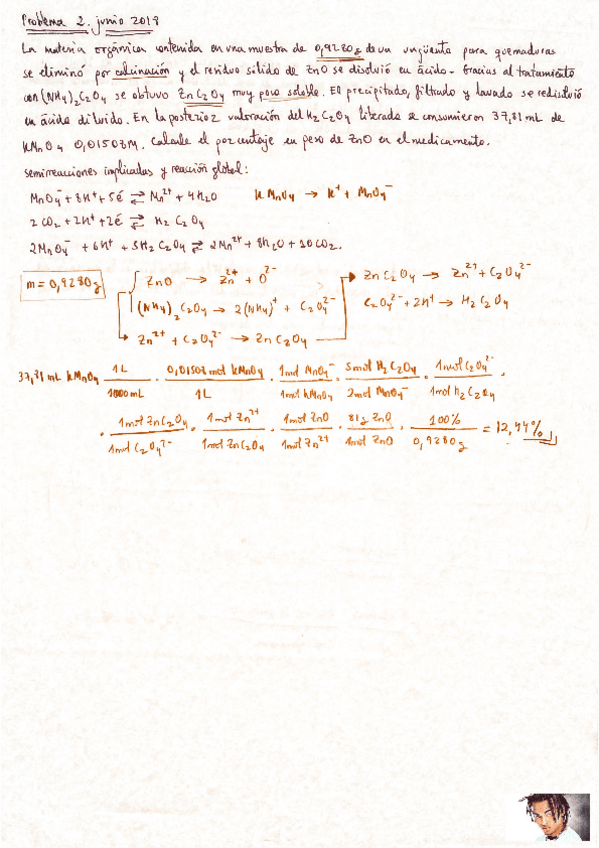 Problema 2. junio 2018
La materia orgánica contenida en una muestra de 0,9280g de un ungüento para quemaduras
se eliminó por calcinación y el residuo sólido de ZnO se disolvió en ácido. Gracias al tratamiento
con (NH4)2C2O4 se obtuvo ZnC2O4 muy poco soluble. El precipitado, filtrado y lavado se redisolvió
en ácido diluido. En la posterior valoración del H2C2O4 liberado se consumieron 37,81 mL de
KMnO4 0,01508M. Calcule el porcentaje en peso de ZnO en el medicamento.
semirreacciones implicadas y reacción global:
MnO4⁻ + 8H⁺ + 5é ⇌ Mn²⁺ + 4H2O KMnO4 → K⁺ + MnO4⁻
2CO2 + 2H⁺ + 2é ⇌ H2C2O4
2MnO4⁻ + 6H⁺ + 5H2C2O4 ⇌ 2Mn²⁺ + 8H2O + 10CO2.
m = 0,9280g
ZnO → Zn²⁺ + O²⁻ ZnC2O4 → Zn²⁺ + C2O4²⁻
(NH4)2C2O4 → 2(NH4)⁺ + C2O4²⁻ C2O4²⁻ + 2H⁺ → H2C2O4
Zn²⁺ + C2O4²⁻ → ZnC2O4
37,81 mL KMnO4 · 1L/1000mL · 0,01508 mol KMnO4/1L · 1mol MnO4⁻/1mol KMnO4 · 5mol H2C2O4/2mol MnO4⁻ · 1mol C2O4²⁻/1mol H2C2O4 ·
· 1mol ZnC2O4/1mol C2O4²⁻ · 1mol Zn²⁺/1mol ZnC2O4 · 1mol ZnO/1mol Zn²⁺ · 81g ZnO/1mol ZnO · 100%/0,9280g = 12,44%